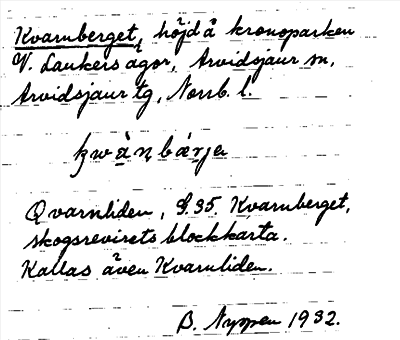 Kvarnberget, höjd å kronoparken
V. Laukers ägor, Arvidsjaur sn,
Arvidsjaur tg, Norrb. l.
kwànbærje
Qvarnliden, S. 35. Kvarnberget,
skogsrevirets blockkarta.
Kallas även Kvarnliden.
B. Nyppen 1932.